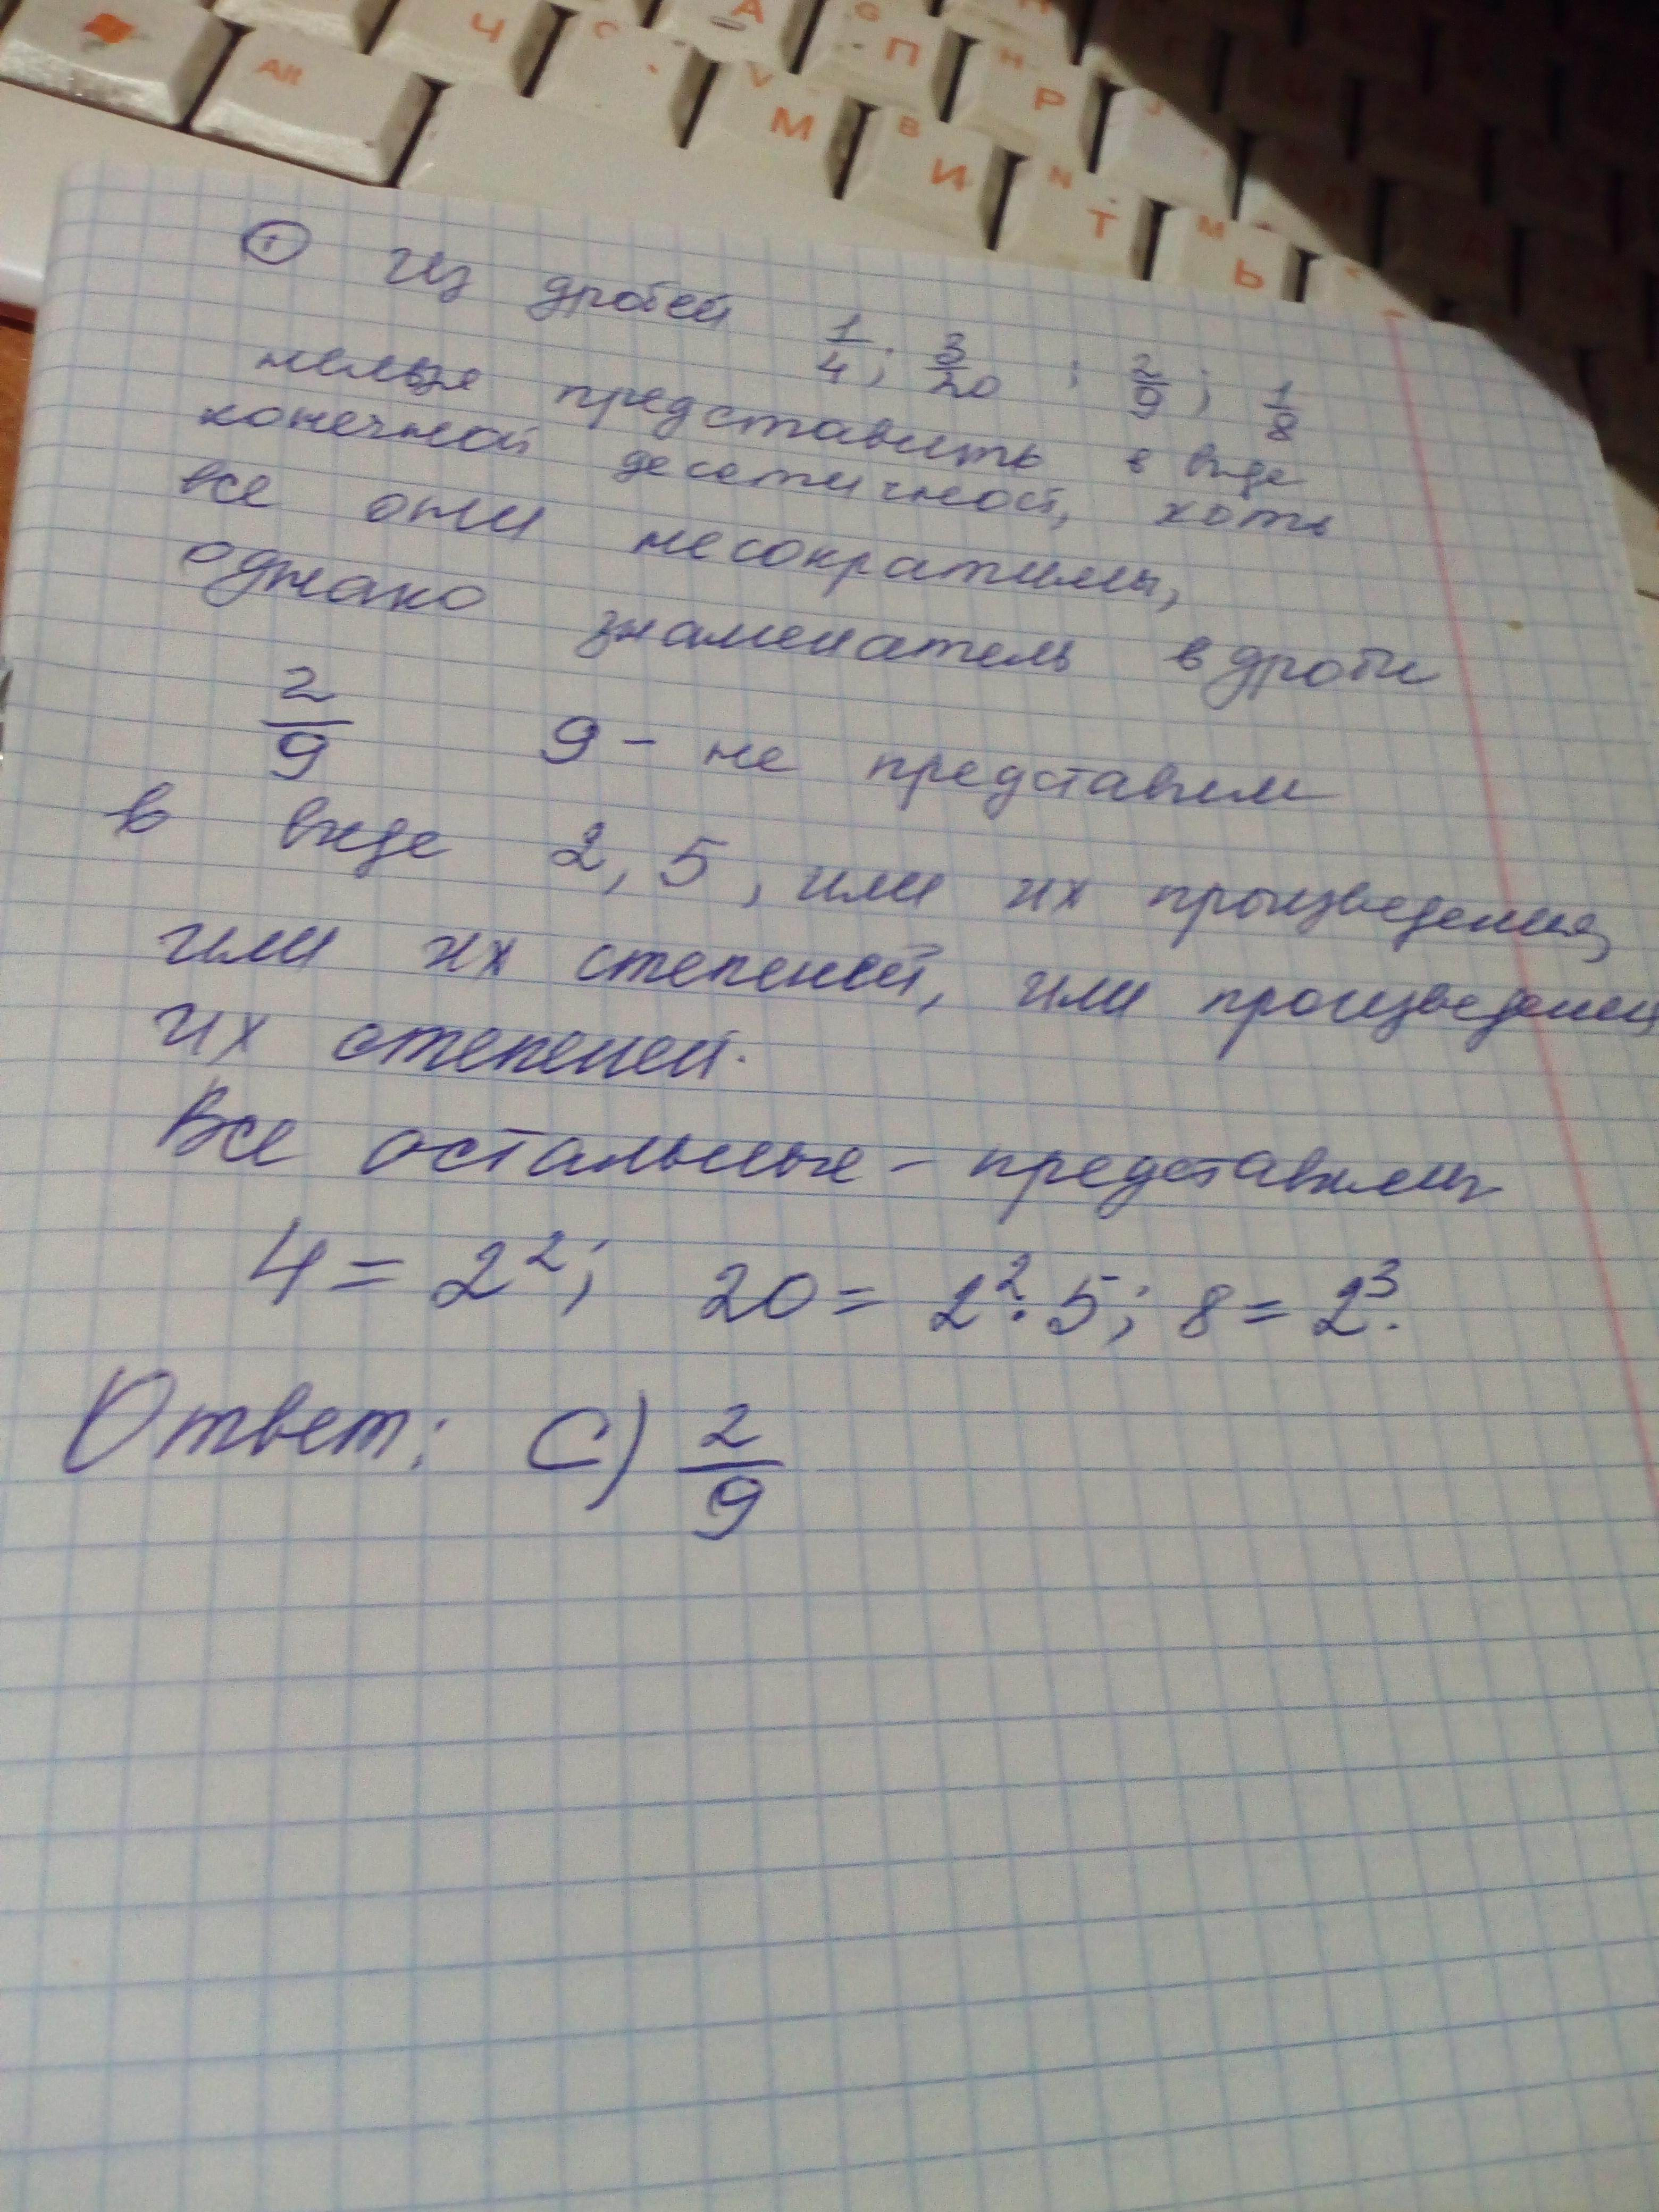 Alt
Ч
С
А
V
М
G
П
В
И
Н
Р
N
Т
М
Ь
① Из дробей 1/4; 3/20; 2/9; 1/8
нельзя представить в виде
конечной десятичной, хоть
все они несократимы,
однако знаменатель в дроби
2/9 9 - не представим
в виде 2, 5, или их произведения,
или их степеней, или произведения
их степеней.
Все остальные - представимы
4 = 2²; 20 = 2² · 5; 8 = 2³.
Ответ: С) 2/9